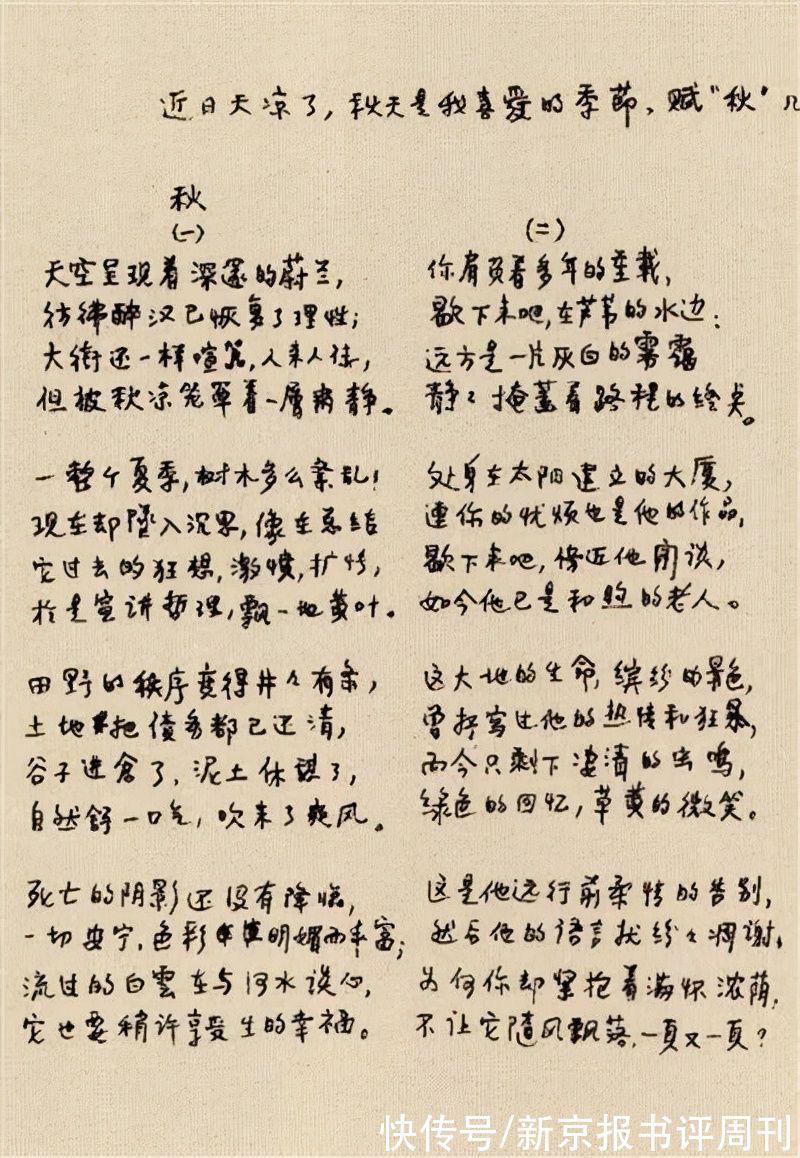 近日天凉了,秋天是我喜爱的季節、赋“秋”几
秋
(一)
天空呈现着深邃的蔚兰,
彷彿醉汉已恢复了理性;
大街还一样喧嚣,人来人往,
但被秋凉笼罩着一層肃静。
一整个夏季,树木多么紊乱!
现在却坠入沉思,像在总结
它过去的狂想,激愤,扩张,
於是宣讲哲理,飘一地黄叶。
田野的秩序变得井々有条,
土地把债务都已还清,
谷子进仓了,泥土休憩了,
自然舒一口气,吹来了爽风。
死亡的阴影还没有降临,
一切安宁,色彩明媚而丰富;
流过的白雲在与河水谈心,
它也要稍许享受生的幸福。
(二)
你肩负着多年的重载,
歇下来吧,在芦苇的水边:
远方是一片灰白的雾霭
静々掩盖着路程的终点。
处身在太阳建立的大厦,
连你的忧烦也是他的作品,
歇下来吧,傍近他闲谈,
如今他已是和煦的老人。
这大地的生命,缤纷的景色,
曾抒写过他的热情和狂暴,
而今只剩下凄清的虫鸣,
绿色的回忆,草黄的微笑。
这是他远行前柔情的告别,
然后他的语言就纷々凋谢,
为何你却紧抱着满怀浓荫,
不让它随风飘落,一頁又一頁?
快传号/新京报书评周刊